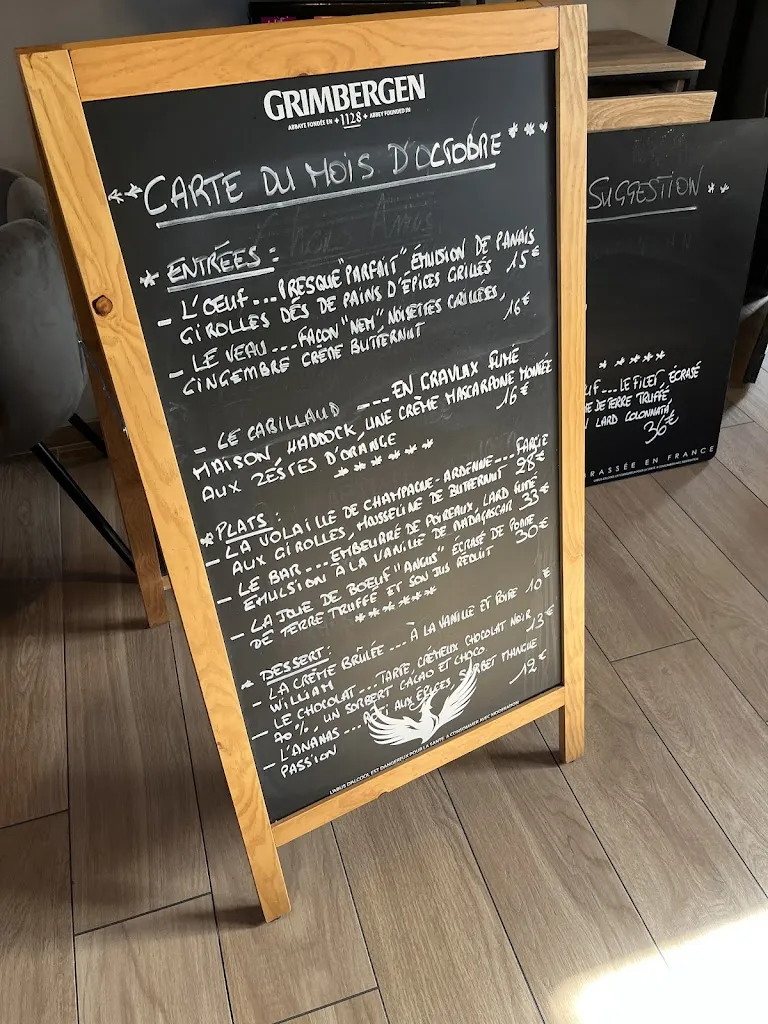 GRIMBERGEN
ABBAYE FONDÉE EN + 1128 + ABBEY FOUNDED IN
** CARTE DU MOIS D'OCTOBRE ***
* ENTRÉES :
- L'OEUF... PRESQUE "PARFAIT", ÉMULSION DE PANAIS
GIROLLES DÉS DE PAINS D'ÉPICES GRILLÉS 15€
- LE VEAU --- FAÇON "NEM" NOISETTES GRILLÉES,
GINGEMBRE CRÈME BUTTERNUT 16€
- LE CABILLAUD ---- EN GRAVLAX FUMÉ
MAISON, HADDOCK, UNE CRÈME MASCARPONE MONTÉE
AUX ZESTES D'ORANGE 16€
******
* PLATS :
- LA VOLAILLE DE CHAMPAGNE-ARDENNE --- FARCIE
AUX GIROLLES, MOUSSELINE DE BUTTERNUT 28€
- LE BAR --- EMBEURRÉ DE POIREAUX, LARD FUMÉ
ÉMULSION À LA VANILLE DE MADAGASCAR 33€
- LA JOUE DE BOEUF "ANGUS" ÉCRASÉ DE POMME
DE TERRE TRUFFÉ ET SON JUS RÉDUIT 30€
******
* DESSERT :
- LA CRÈME BRÛLÉE --- À LA VANILLE ET POIRE
WILLIAM 10€
- LE CHOCOLAT ... TARTE, CRÉMEUX CHOCOLAT NOIR
70%, UN SORBET CACAO ET CHOCO 13€
- L'ANANAS --- AUX ÉPICES, SORBET MANGUE
PASSION 12€
L'ABUS D'ALCOOL EST DANGEREUX POUR LA SANTÉ. À CONSOMMER AVEC MODÉRATION.
SUGGESTION **
*****
UF --- LE FILET, ÉCRASÉ
DE TERRE TRUFFÉ,
LARD COLONNATA
36€
RASSÉE EN FRANCE